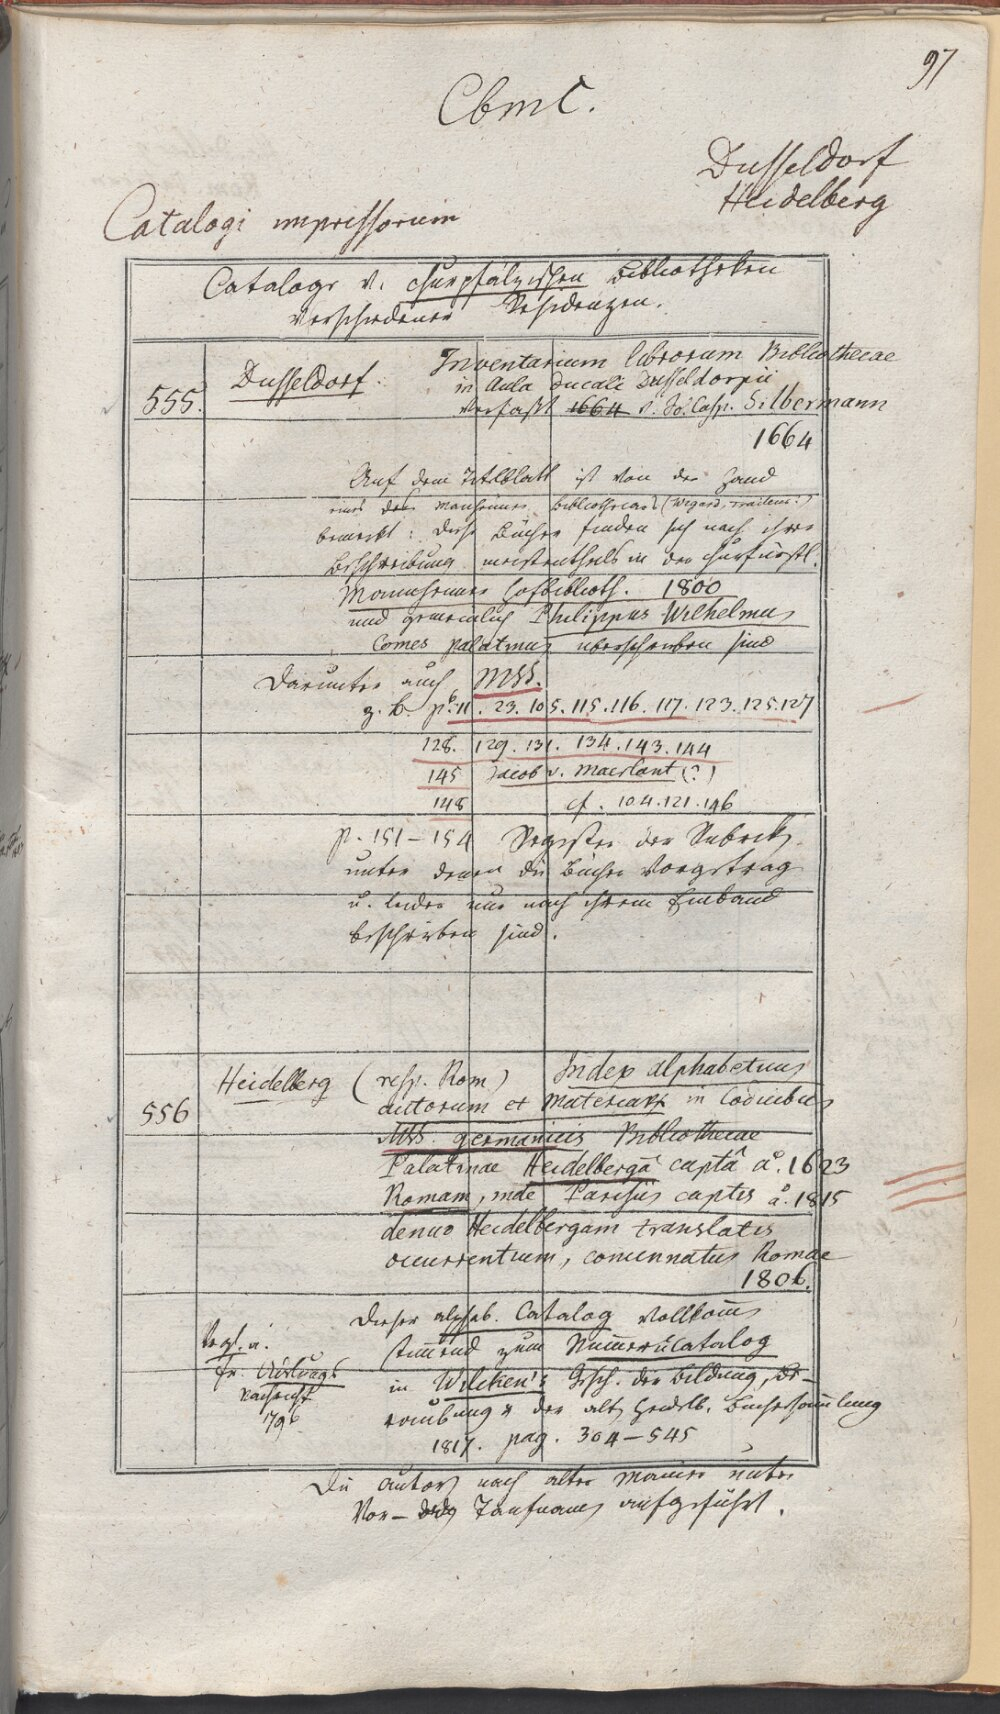 97
Cbmc.
Dusseldorf
Heidelberg
Catalogi impressorum
Cataloge v. churpfälzischen Bibliotheken
verschiedener Residenzen.
555. Dusseldorf. Inventarium librorum Bibliothecae
in Aula Ducali Dusseldorpii
verfaßt 1664 v. Jo. Casp. Silbermann
1664
Auf dem Titelblatt ist von der Hand
eines des Manheimer Bibliothecars
bemerkt: diese Bücher finden sich nach ihrer
Beschreibung meistentheils in der churfürstl.
Mannheimer Hofbiblioth. 1800
und gemeinlich Philippus Wilhelmus
Comes palatinus überschrieben sind
Darunter auch MSS.
z. B. p. 11. 23. 105. 115. 116. 117. 123. 125. 127
128. 129. 131. 134. 143. 144
145 Jacob v. Maerlant (?)
148 cf. 104. 121. 146
p. 151 – 154 Register der Rubrik
unter denen die Bücher vorgetrag
u. leider nur nach ihrem Einband
beschrieben sind.
556 Heidelberg (resp. Rom) Index alphabeticus
autorum et materiarum in Codicibus
MSS. germanicis Bibliothecae
Palatinae Heidelbergâ captâ aº. 1623
Romam, inde Parisiis captis aº. 1815
denuo Heidelbergam translatis
occurrentium, concinnatus Romae
1806.
Dieser alphab. Catalog vollkom̄
stim̄end zum Num̄erncatalog
Vergl. a.
in Wilken's Gesch. der Bildung, Be-
Nachricht
796
raubung der alt Heidelb. Büchersam̄lung
1817. pag. 304 – 545
Die Autor nach alter Manier unter
Vor- Taufnam aufgeführt.